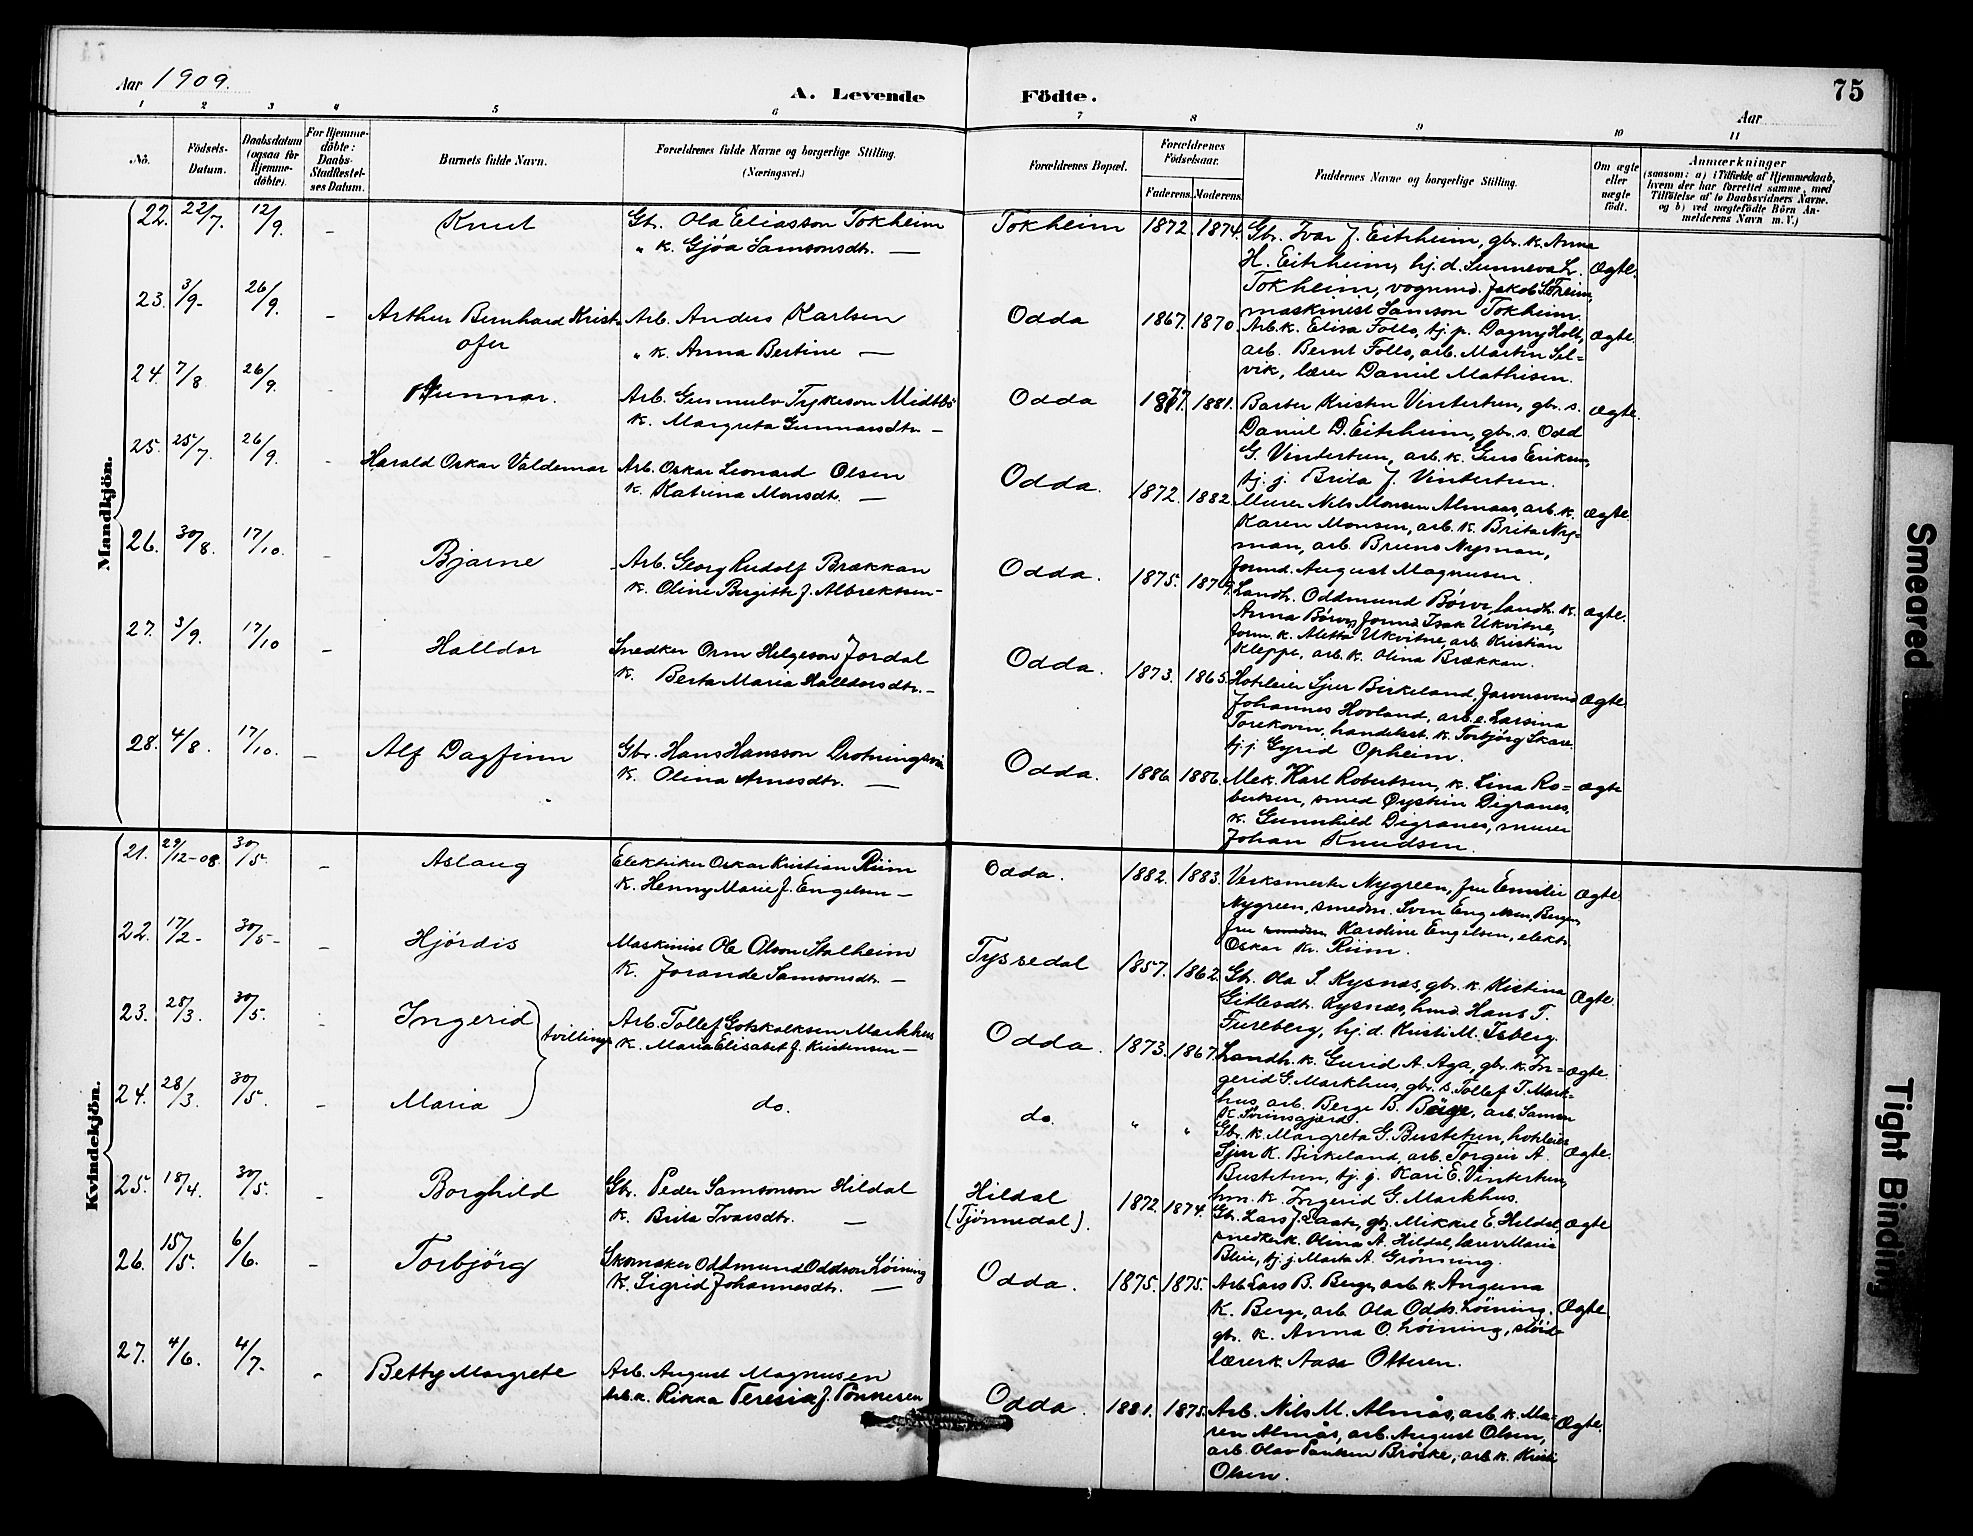 Aar 1909.
A. Levende Födte.
75
Aar
1 2 3 4 5 6 7 8 9 10 11
No.
Födsels-Datum.
Daabsdatum (ogsaa for Hjemme-döbte).
For Hjemme-döbte: Daabs-Stadfæstel-ses Datum.
Barnets fulde Navn.
Forældrenes fulde Navne og borgerlige Stilling. (Næringsvei.)
Forældrenes Bopæl.
Forældrenes Födselsaar.
Faderens. Moderens.
Faddernes Navne og borgerlige Stilling.
Om ægte eller uægte födt.
Anmærkninger
(saasom: a) i Tilfælde af Hjemmedaab, hvem der har forrettet samme, med Tilföielse af to Daabsvidners Navne, og b) ved uægtefödte Börn An-melderens Navn m. V.)
Mandkjön.
22. 22/7. 12/9. - Knut
Gbr. Ola Eliasson Tokheim
" k. Gjøa Samsonsdtr. —
Tokheim 1872. 1874.
Gbr. Ivar J. Eitrheim, gbr. k. Anna
H. Eitrheim, hj. d. Sunneva L.
Tokheim, vognmd. Jakob
maskinist Samson Tokheim.
Ægte.
23. 3/9- 26/9. - Arthur Bernhard Krist-
ofer
Arb. Anders Karlsen
" k. Anna Bertine —
Odda 1867. 1870.
Arb. k. Elisa Follo, tj. p. Dagny Holt,
arb. Bernt Follo, arb. Martin Sol-
vik, lærer Daniel Mathisen.
Ægte.
24. 7/8. 26/9. - Gunnar.
Arb. Gunnulv Tykeson Midtbö
k. Margreta Gunnarsdtr. —
Odda 1877. 1881.
Barber Kristen Vintertun, gbr. s.
Daniel D. Eitrheim, gbr. s. Odd
G. Vintertun, arb. k. Guro Eriksen,
tj. j. Brita J. Vintertun.
Ægte.
25. 25/7. 26/9. - Harald Oskar Valdemar
Arb. Oskar Leonard Olsen
k. Katrina Monsdtr. —
Odda. 1872. 1882.
Murer Nils Monsen Almaas, arb. k.
Karen Monsen, arb. k. Brita Nyg-
man, arb. Bruno Nygman,
formd. August Magnusen.
Ægte.
26. 30/8. 17/10. - Bjarne
Arb. Georg Rudolf Brækkan
k. Oline Birgitte f. Albrektsen —
Odda. 1875. 1879.
Landh. Oddmund Børve, landh. k.
Anna Børve, formd. Isak Ukvitne,
form. k. Aletta Ukvitne, arb. Kristian
Kleppe, arb. k. Olina Brækkan.
Ægte.
27. 3/9. 17/10 - Halldor
Snedker Orm Helgeson Jordal
k. Berta Maria Halldorsdtr. —
Odda. 1873. 1865.
Hoteleier Sjur Birkeland, farversvend
Johannes Hovland, arb. e. Larsina
handelsst. k. Torbjörg Skare
tj. j. Gyrid Opheim.
Ægte.
28. 4/8. 17/10. — Alf Dagfinn
Gbr. Hans Hansson Drotningsvik
k. Olina Arnesdtr. —
Odda. 1886. 1886.
Mek. Karl Robertsen, k. Lina Ro-
bertsen, smed Øystein Digranes,
k. Gunnhild Digranes, murer
Johan Knudsen.
Ægte
Kvindekjön.
21. 29/12-08. 30/5. - Aslaug
Elektriker Oskar Kristian Riim
k. Henny Marie f. Engelsen —
Odda. 1882. 1883.
Verksmester Nygreen, fru Emilie
Nygreen, smedm. Sven Engelsen, Bergen,
fru Kardine Engelsen, elektr.
Oskar Kr. Riim.
Ægte.
22. 17/2- 30/5- - Hjördis
Maskinist Ole Olson Stalheim
k. Jorande Samsonsdtr. —
Tyssedal 1857. 1862.
Gbr. Ola S. Kysnæs, gbr. k. Kistina
Gitlesdtr. Kysnæs, hmd. Hans T.
Fureberg, hj. d. Kristi M. Isberg.
Ægte.
23. 28/3. 30/5. - Ingerid
tvillinger
Arb. Tollef Gotskalksen Markhus
k. Maria Elisabet f. Kristensen —
Odda. 1873. 1867.
Landh. k. Gurid A. Aga, gbr. k. In-
gerid G. Markhus, gbr. s. Tollef T. Mark-
hus, arb. Berge B. Berge, arb. Samson
K.
Ægte.
24. 28/3. 30/5. - Maria
do.
do. " "
Gbr. k. Margreta G. Bustetun, hoteleier
Sjur K. Birkeland, arb. Torgeir A.
Bustetun, tj. j. Kari E. Vintertun,
hm. k. Ingerid G. Markhus.
Ægte.
25. 18/4. 30/5. - Borghild
Gbr. Peder Samsonson Hildal
k. Brita Ivarsdtr. —
Hildal
(Tjönnedal). 1872. 1874.
Gbr. Lars J. gbr. Mikkel E. Hildal,
snedker k. Olina A. Hildal, lærer Maria
Bleie, tj. j. Marta A. Grönning.
Ægte
26. 15/5. 6/6. - Torbjörg
Skomaker Oddmund Oddson Löining
k. Sigrid Johannesdtr. —
Odda. 1875. 1875.
Arb. Lars B. Berge, arb. k. Anguna
K. Berge, arb. Ola Odds. Löining,
gbr. k. Anna O. Löining, sløid-
lærer k. Aasa Otteren.
Ægte.
27. 4/6. 4/7. - Betty Margrete
Arb. August Magnusen
Arb. k. Rikka Teresia f. Tönnesen
Odda. 1881. 1875.
Arb. Nils M. Almås, arb. k. Ma-
ren Almås, arb. August Olsen,
arb. Olav Brøske, arb. k. Kristi
Olsen.
Ægte.
Smeared
Tight Binding